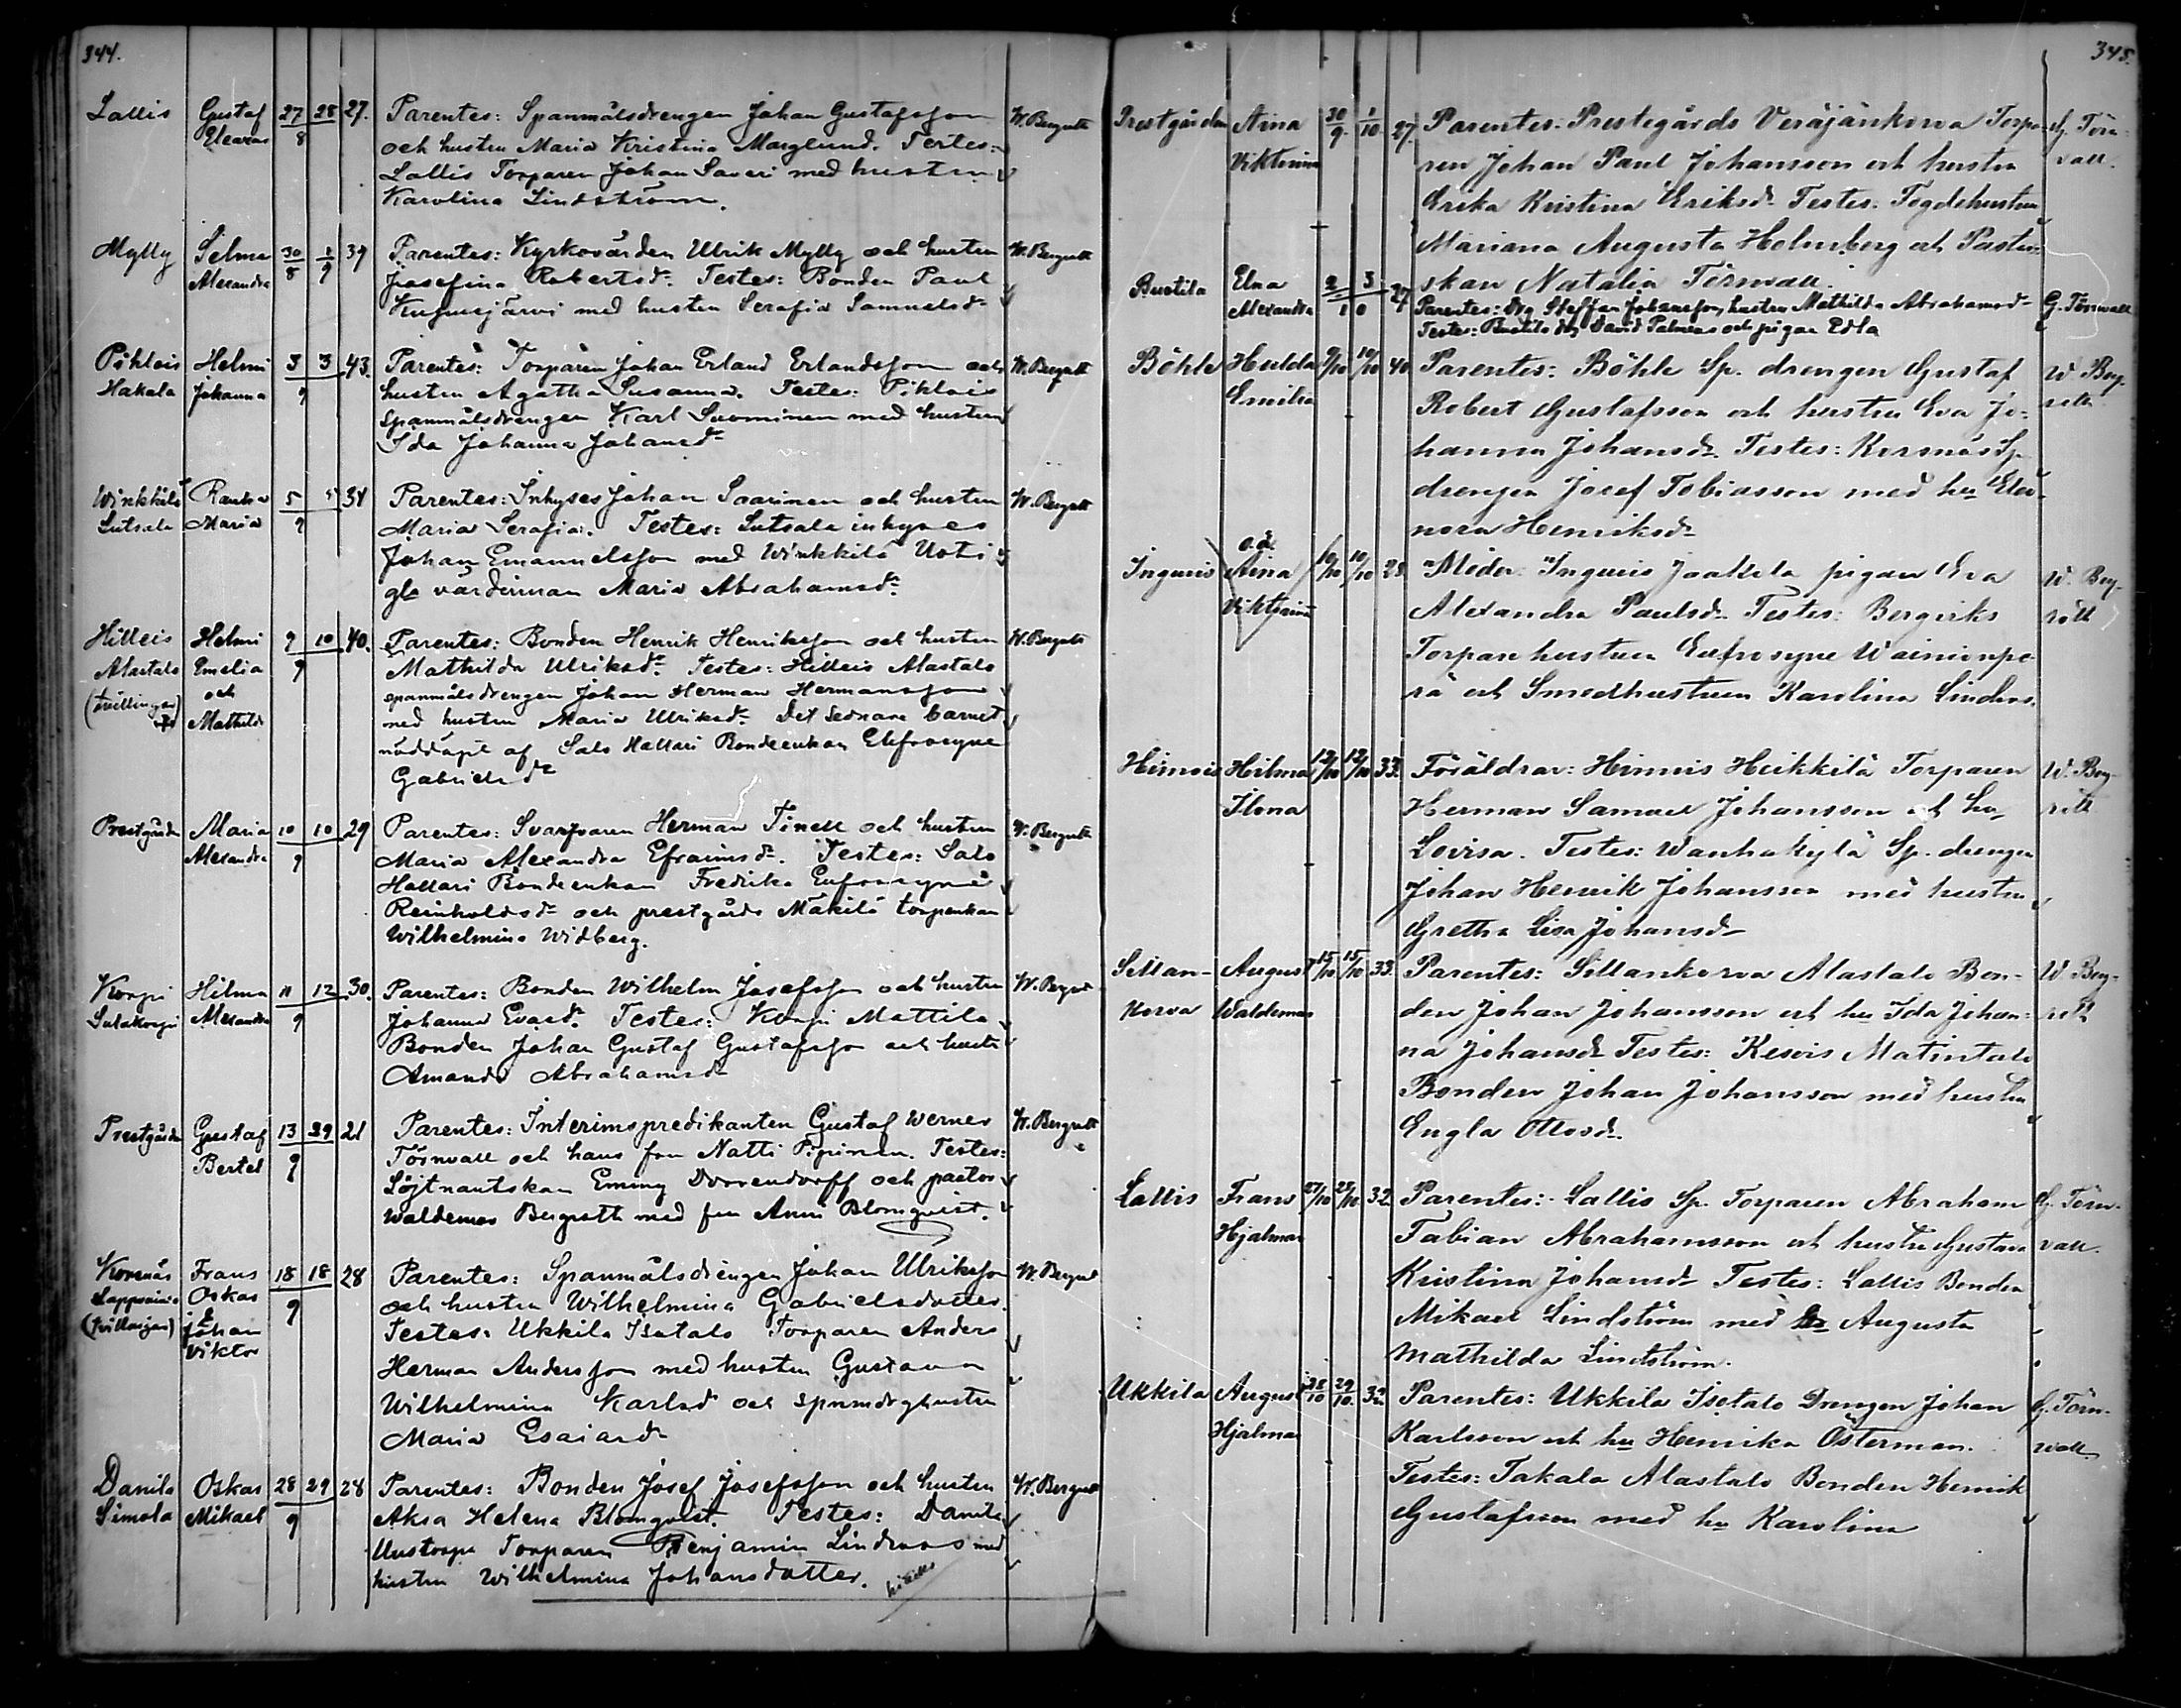 344.
Lallis Gustaf 27 28 27. Parentes: Spanmålsdrengen Johan Gustafsson W. Bergroth
Eleazar 8 och hustru Maria Kristina Marglund. Testes:
Lallis Torparen Johan Saveri med hustru
Karolina Lindström.
Mylly Selma 30 1 39 Parentes: Kyrkovärden Ulrik Mylly och hustru W. Bergroth
Alexandra 8 9 Josefina Robertsdr. Testes: Bonden Paul
med hustru Serafia Samuelsdr
Pihlais Helmi 3 3 43. Parentes: Torparen Johan Erland Erlandsson och W. Bergroth
Hakala Johanna 9 hustru Agatha Susanna. Testes: Pihlais
spanmålsdrengen Karl Suominen med hustru
Ida Johanna Johansdr
Winkkilä 5 34 Parentes: Inhyses Johan Saarinen och hustru W. Bergroth
Sutsala Maria 9 Maria Serafia. Testes: Sutsala inhyses
Johan Emanuelsson med Winkkilä Uoti
gla värdinnan Maria Abrahamsdr
Hilleis Helmi 9 10 40. Parentes: Bonden Henrik Henriksson och hustru W. Bergroth
Alastalo Emelia 9 Mathilda Ulriksdr. Testes: Hilleis Alastalo
(tvillingar) och spanmålsdrengen Johan Herman Hermansson
Mathilda med hustru Maria Ulriksdr. Det sednare barnet
nöddöpt af Salo Hallari Bondeenkan Eufrosyne
Gabrielsdr
Prestgården Maria 10 10 29 Parentes: Svarfvaren Herman Tinell och hustru W. Bergroth
Alexandra 9 Maria Alexandra Efraimsdr. Testes: Salo
Hallari Bondeenkan Fredrika Eufrosyne
Reinholdsdr och prestgårds Mäkilä torpenkan
Wilhelmina Widberg.
Korpi Hilma 11 12 30. Parentes: Bonden Wilhelm Josefsson och hustru W. Bergroth
Alexandra 9 Johanna Evasdr. Testes: Korpi Mattila
Bonden Johan Gustaf Gustafsson och hustr
Amanda Abrahamsdr
Prestgården Gustaf 13 29 21 Parentes: Interimspredikanten Gustaf Werner W. Bergroth
Bertel 9 Törnvall och hans fru Natti Pipinen. Testes:
Löjtnantskan Emmy Dorrendorff och pastor
Waldemar Bergroth med fru Anni Blomqvist.
Korsnäs Frans 18 18 28 Parentes: Spanmålsdrengen Johan Ulriksson W. Bergroth
Oskar 9 och hustru Wilhelmina Gabrielsdotter.
(tvillingar) & Johan Testes: Ukkila Isotalo Torparen Anders
Viktor Herman Andersson med hustru Gustava
Wilhelmina Karlsd och spmdrghustru
Maria Esaiasdr
Danila Oskar 28 29 28 Parentes: Bonden Josef Josefsson och hustru W. Bergroth
Simola Mikael 9 Aksa Helena Blomqvist. Testes: Danila
Uustorpa Torparen Benjamin Lindroos med
hustru Wilhelmina Johansdotter.
345.
Prestgården Aina 30/9 1/10 27. Parentes: Prestegårds Veräjänkorva Torpa- G. Törn-
Viktorina ren Johan Paul Johansson och hustru vall.
Erika Kristina Eriksdr. Testes: Fogdehustrun
Mariana Augusta Holmberg och Pastor-
skan Natalia Törnvall.
Bustila Elna 2 3 27 Parentes: drg Staffan Johansson, hustru Mathilda Abrahamsdr G. Törnvall
Alexandra 10 Testes: Bustila drg David Palmroos och pigan Edla
Böhle Hulda 9/10 10/10 40 Parentes: Böhle Sp. drengen Gustaf W. Berg-
Emilia Robert Gustafsson och hustru Eva Jo- roth
hanna Johansdr. Testes: Korsnäs Sp.
drengen Josef Tobiasson med hu Eleo-
nora Henriksdr
o.ä.
Inguris Aina 10/10 10/10 28 Moder: Inguris Jaakola pigan Eva W. Berg-
Viktorina Alexandra Paulsdr. Testes: Bergviks roth
Torpare hustrun Eufrosyne Wainionpe-
rä och Smedhustrun Karolina Lindroos.
Hinnois Hilma 12/10 12/10 33. Föräldrar: Hinnois Heikkilä Torparen W. Berg-
Ilona Herman Samuel Johansson och hu roth
Lovisa. Testes: Wanhakylä Sp. drengen
Johan Henrik Johansson med hustru
Gretha Lisa Johansdr
Sillan- August 15/10 15/10 33. Parentes: Sillankorva Alastalo Bon- W. Berg-
korva Waldemar den Johan Johansson och hu Ida Johan- roth
na Johansdr. Testes: Kesois Matintalo
Bonden Johan Johansson med hustru
Engla Ottosdr.
Lallis Frans 27/10 29/10 32 Parentes: Lallis Sp. Torparen Abraham G. Törn-
Hjalmar Fabian Abrahamsson och hustru Gustava vall.
Kristina Johansdr Testes: Lallis Bonden
Mikael Lindström med hu Augusta
Mathilda Lindström.
Ukkila August 28/10 29/10 32 Parentes: Ukkila Isotalo Drengen Johan G. Törn-
Hjalmar Karlsson och hu Henrika Österman. wall
Testes: Takala Alastalo Bonden Henrik
Gustafsson med hu Karolina